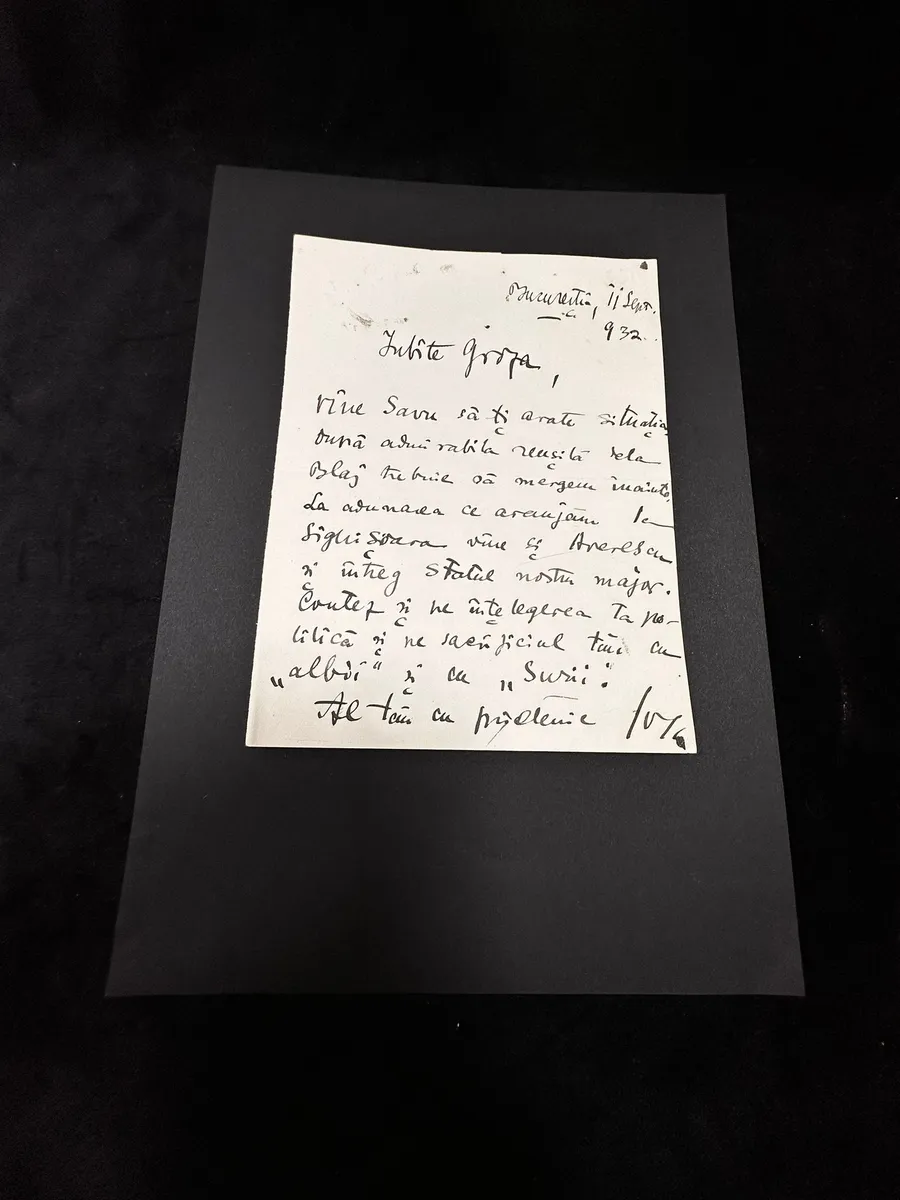 București, 11 Sept.
932.
Iubite Groza,
Vine Savu să ți arate situația
După admirabila reușită dela
Blaj trebuie să mergem înainte.
La adunarea ce aranjăm la
Sighișoara vine și Averescu
și întreg Statul nostru major.
Contez și pe înțelegerea ta po-
litică și pe sacrificiul tău cu
„albii" și cu „Surii".
Al tău cu prietenie